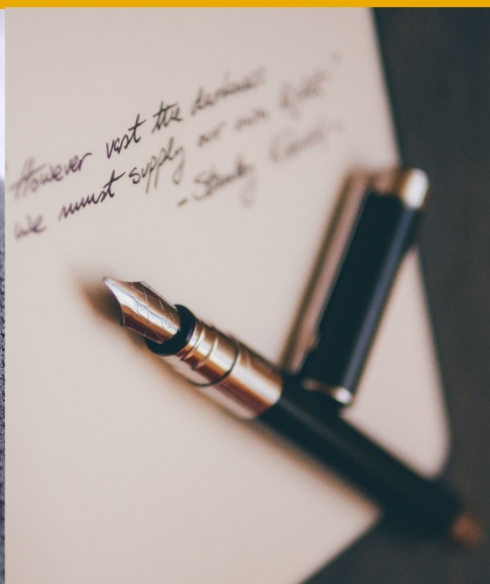 However vast the darkness
we must supply our own light"
- Stanley